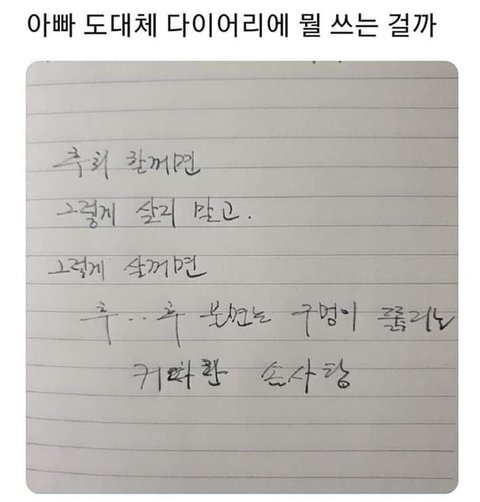 아빠 도대체 다이어리에 뭘 쓰는 걸까
후회 할꺼면
그렇게 살지 말고.
그렇게 살꺼면
후..후 불면는 구멍이 뚫리는
커다란 솜사탕